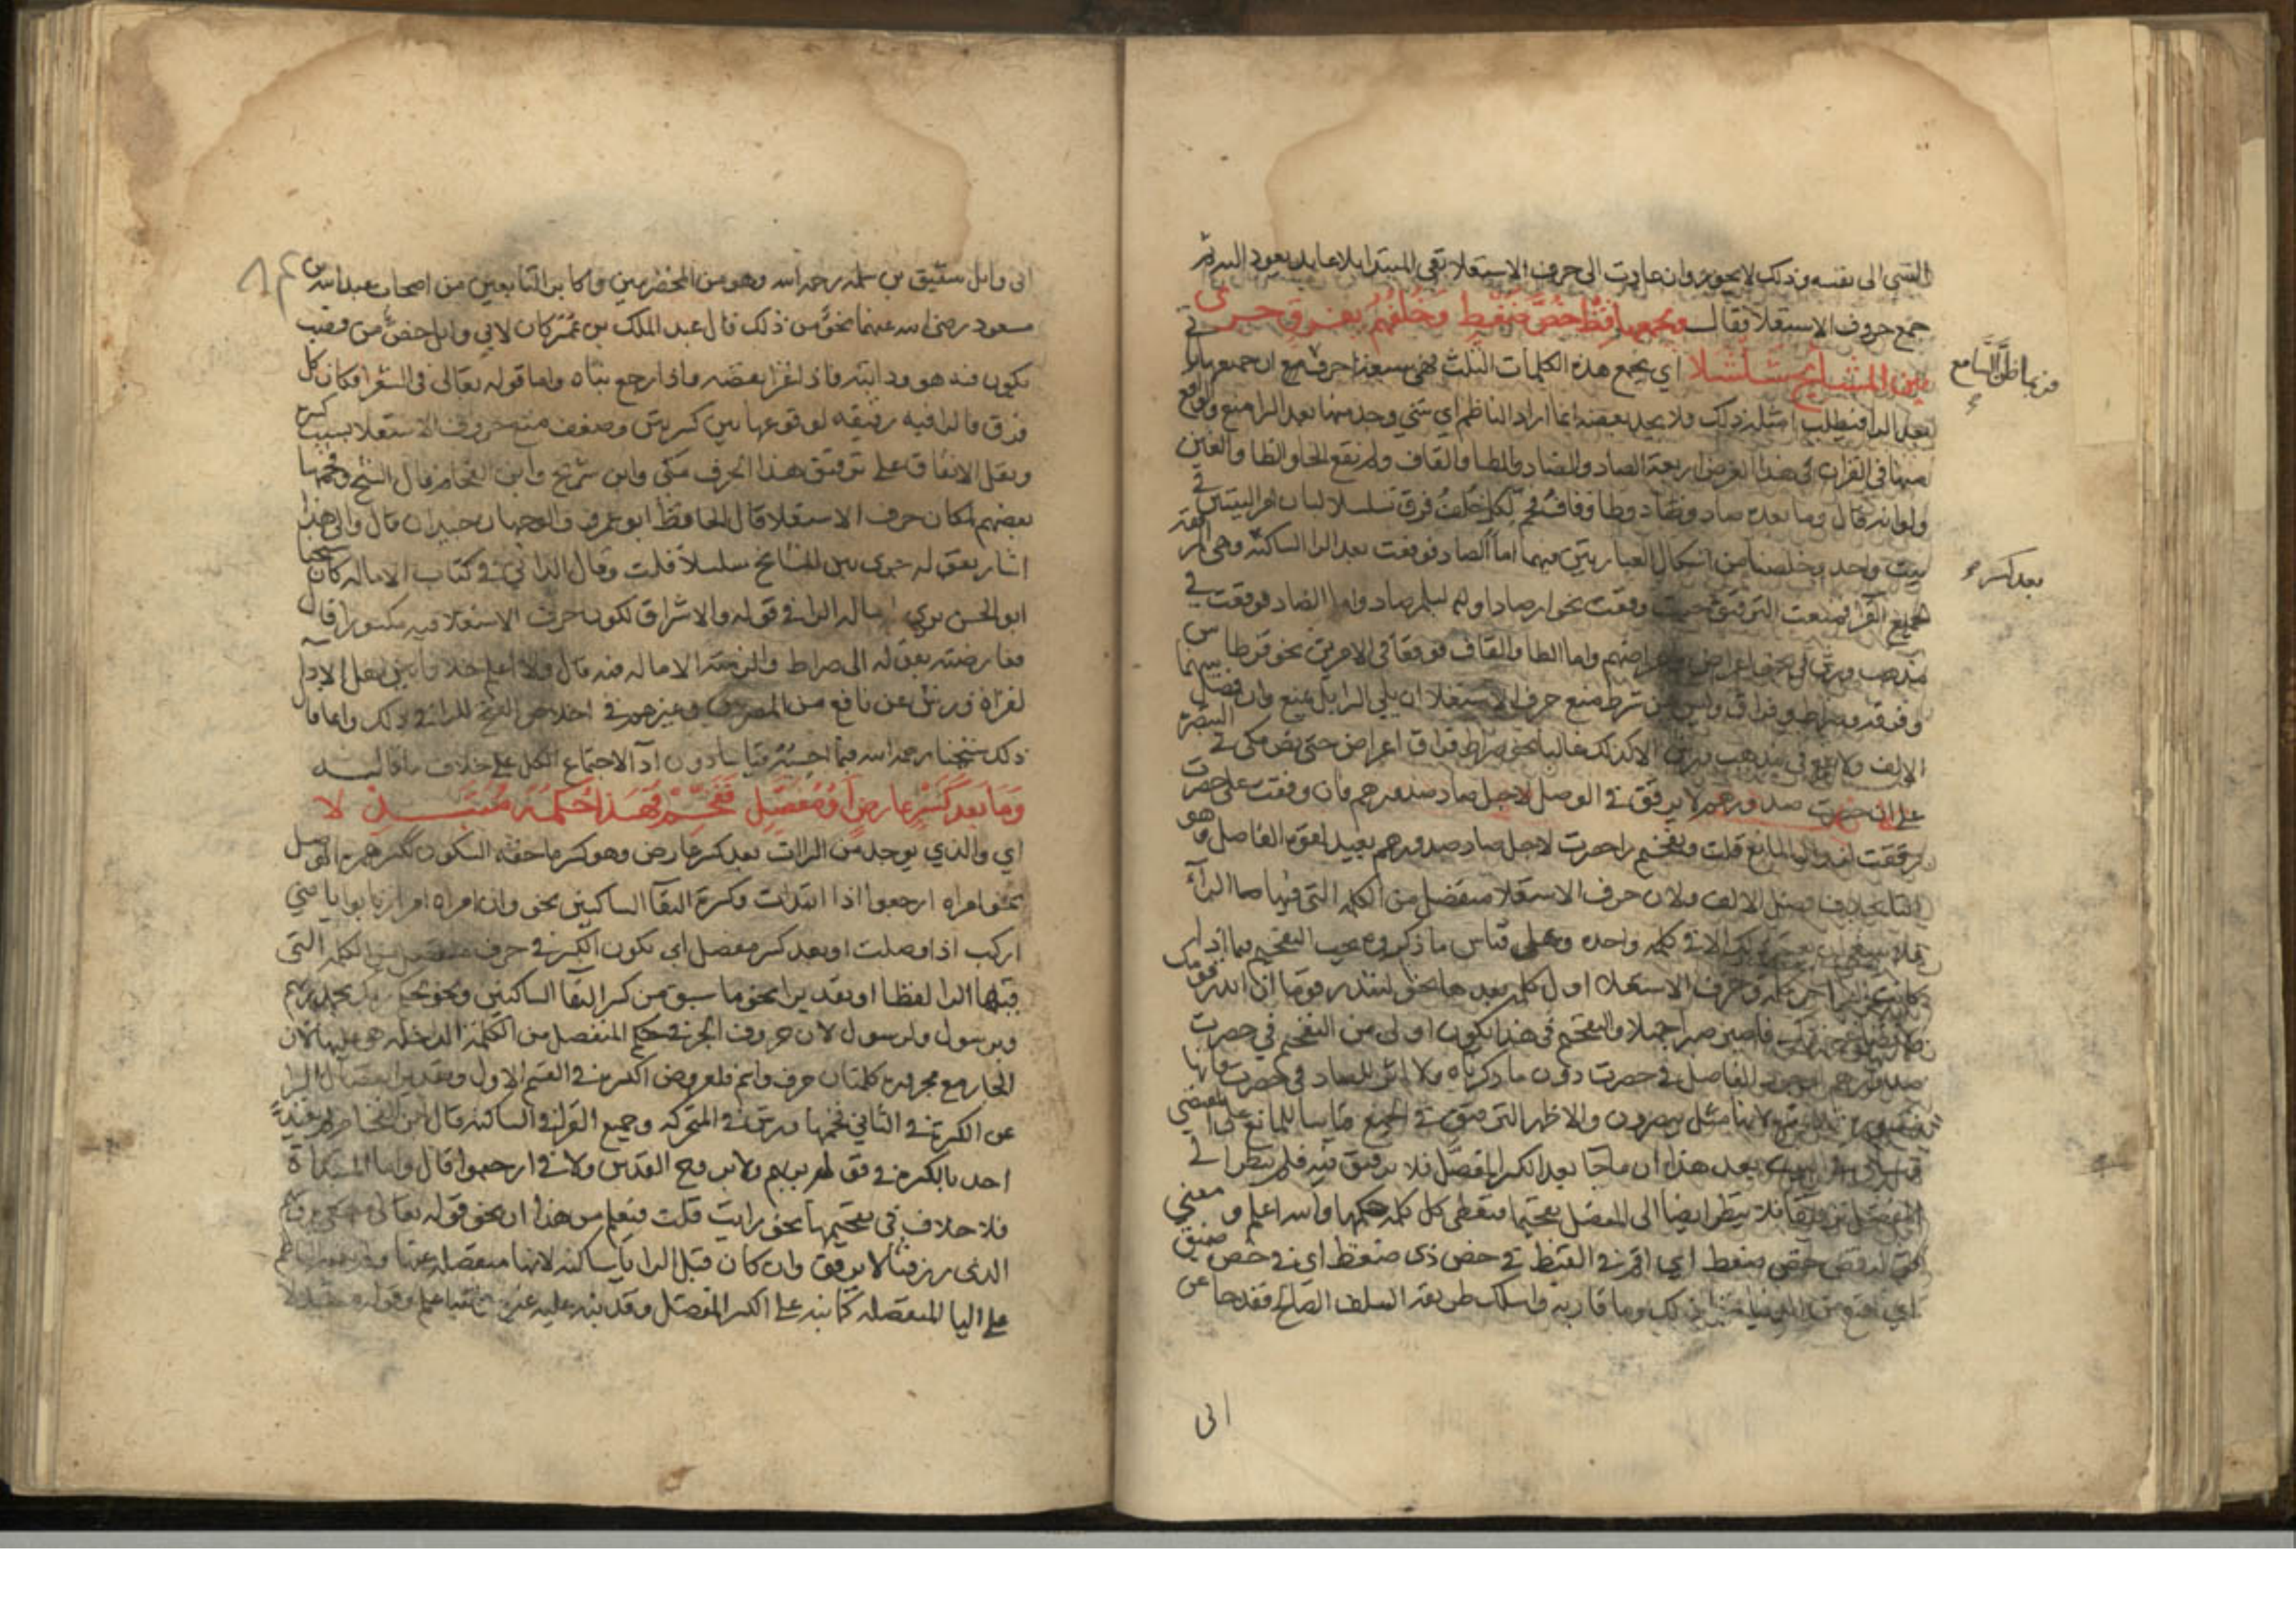 الشي الى نفسه وذلك لا يجوز وان عادت الى حروف الاستعلا بقي المبتدا بلا عايد يعود اليه ثم
جمع حروف الاستعلا فقال ويجمعها قظ خص ضغط وخلفهم بفرق جرى
بين المشايخ سلسلا اي يجمع هذه الكلمات الثلث فهي سبعة احرف مع ان جميعها
فربما ظن السامع
بعد الرا فيطلب امثلة ذلك ولا يجد بعضه انما اراد الناظم اي شي وجد منها بعد الرا منع والواقع
منها في القران في هذا الغرض اربعة الصاد والضاد والطا والقاف ولم يقع الخا والظا والغين
ولو انه قال وما بعده صاد وضاد وطا وقاف فخم لكل خلف فرق تسلسلا لبان امر البيتين في
بيت واحد وخلصنا من اشكال العبارتين فيهما اما الصاد فوقعت بعد الرا الساكنة وهي
بعد كسر
لجميع القرا فمنعت الترقيق حيث وقعت نحو ارصادا ولبالمرصاد واما الضاد فوقعت في
مذهب ورش في نحو اعراضا واعراضهم واما الطا والقاف فوقعا في الامرين نحو قرطاس
وفرقة وصراط وفراق وليس من شرط منع حرف الاستعلا ان يلي الرا بل يمنع وان فصل بينهما
الالف ولا يقع في مذهب ورش الا كذلك غالبا نحو صراط فراق اعراض حتى نص مكي في التبصرة
على ان حصرت صدورهم لا يرقق في الوصل لاجل صاد صدورهم فان وقفت على حصرت
رققت لزوال المانع قلت وتفخيم را حصرت لاجل صاد صدورهم بعيد لقوة الفاصل وهو
التا بخلاف فصل الالف ولان حرف الاستعلا منفصل من الكلمة التي فيها الراء
فلا ينبغي ان يعتبر ذلك الا في كلمة واحدة وعلى قياس ما ذكروه يجب التفخيم فيما اذا
كانت الرا اخر كلمة وحرف الاستعلا اول كلمة بعدها نحو لتنذر قوما ان انذر قومك
فاصبر صبرا جميلا والتفخيم في هذا يكون اولى من التفخيم في حصرت
صدورهم لوجود الفاصل في حصرت دون ما ذكرناه ولا اثر للصاد في حصرت
لانها مثل يبصرون والاظهر الترقيق في الجميع قياسا للمانع على المقتضي
بعد هذا ان ما جا بعد الكسر المفصل فلا ترقيق فيه فلم ينظر الى
المنفصل ترقيقا فلا ينظر ايضا الى المنفصل تفخيما فيعطى كل كلمة حكمها والله اعلم ومعنى
قوله قظ خص ضغط اي اقم في القيظ في خص ذي ضغط اي في خص ضيق
اي اقنع من الدنيا بمثل ذلك وما قاربه واسلك طريقة السلف الصالح فقد جا عن
ابي
ابي وايل شقيق بن سلمة رحمه الله وهو من المخضرمين واكابر التابعين من اصحاب عبد الله بن
مسعود رضي الله عنهما نحو من ذلك قال عبد الملك بن عمير كان لابي وايل خص من قصب
يكون فيه هو ودابته فاذا غزا نقضه واذا رجع بناه واما قوله تعالى في الشعرا فكان كل
فرق فالرا فيه رقيقة لوقوعها بين كسرتين وضعف منع حروف الاستعلا بسبب كسره
ونقل الاتفاق على ترقيق هذا الحرف مكي وابن شريح وابن الفحام وقال الشيخ وفخمها
بعضهم لمكان حرف الاستعلا قال الحافظ ابو عمرو والوجهان جيدان قال والى هذا
اشار بقوله جرى بين المشايخ سلسلا قلت وقال الداني في كتاب الامالة كان شيخنا
ابو الحسن يرى امالة الرا في قوله والاشراق لكون حرف الاستعلا فيه مكسورا قال
فعارضته بقوله الى صراط والزمته الامالة فيه قال ولا اعلم خلافا بين اهل الادا
لقراة ورش عن نافع من المصريين وغيرهم في اخلاص الفتح للرا في ذلك وانما قال
ذلك شيخنا رحمه الله فيما احسبه قياسا دون ادا لاجتماع الكل على خلاف ما قاله
وما بعد كسر عارض او مفصل ففخم فهذا حكمه متبذلا
اي والذي يوجد من الرات بعد كسر عارض وهو كسر ما حقه السكون ككسر همزة الوصل
نحو امراة ارجعوا اذا ابتدات وكسرة التقا الساكنين نحو وان امراة ام ارتابوا يا بني
اركب اذا وصلت او بعد كسر مفصل اي يكون الكسر في حرف منفصل من الكلمة التي
فيها الرا لفظا او تقديرا نحو ما سبق من كسر التقا الساكنين ونحو بحمد ربهم
وبرسول ولرسول لان حروف الجر في حكم المنفصل من الكلمة الداخلة هي عليها لان
الجار مع مجروره كلمتان حرف واسم فلعروض الكسر في القسم الاول وتقدير انفصال الرا
عن الكسر في الثاني فخمها ورش في المتحركة وجميع القرا في الساكنة قال ابن الفحام لم يعتد
احد بالكسرة في قوله بربهم ولا بروح القدس ولا في ارجعوا قال واما المبتداة
فلا خلاف في تفخيمها نحو رايت قلت فيعلم من هذا ان نحو قوله تعالى
الذي رزقنا لا يرقق وان كان قبل الرا يا ساكنة لانها منفصلة عنها
على اليا المنفصلة كما نبه على الكسر المفصل وقد نبه عليه غيره